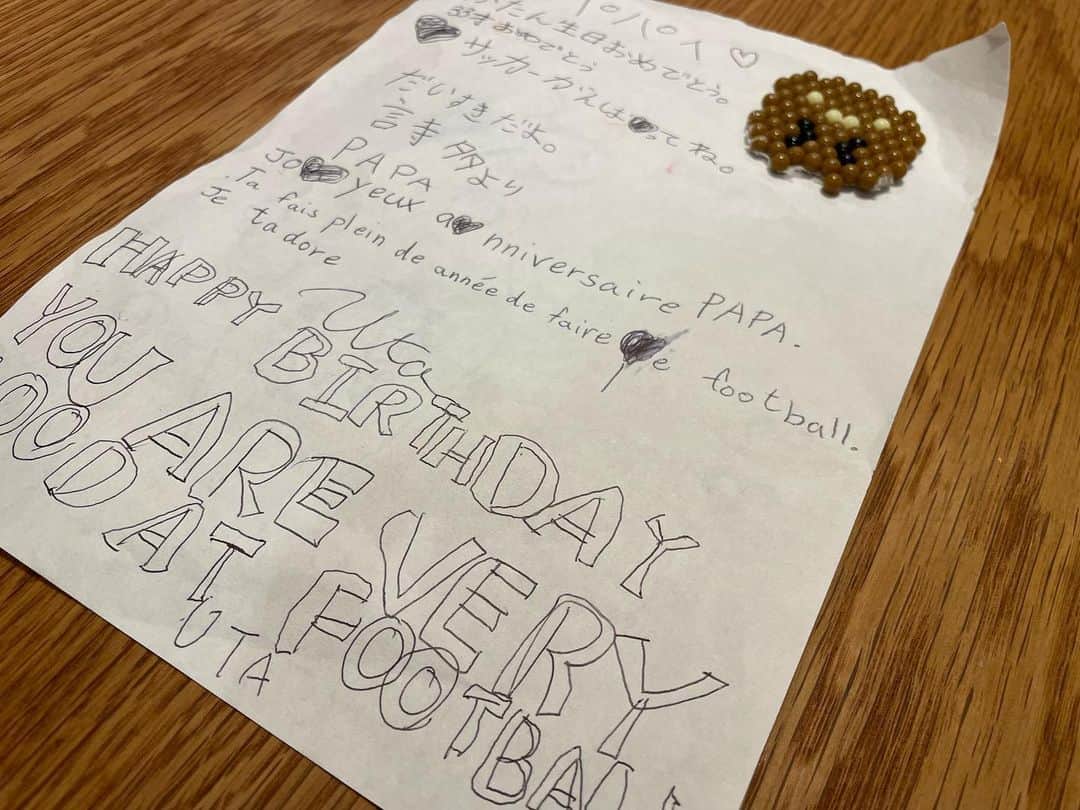 パパへ
たん生日おめでとう。
才おめでとう
サッカーがんばってね。
だいすきだよ。
詩多より
PAPA
Joyeux anniversaire PAPA.
Ta fais plein de année de faire football.
Je tadore
Uta
HAPPY BIRTHDAY
YOU ARE VERY
OOD AT FOOTBAL
UTA